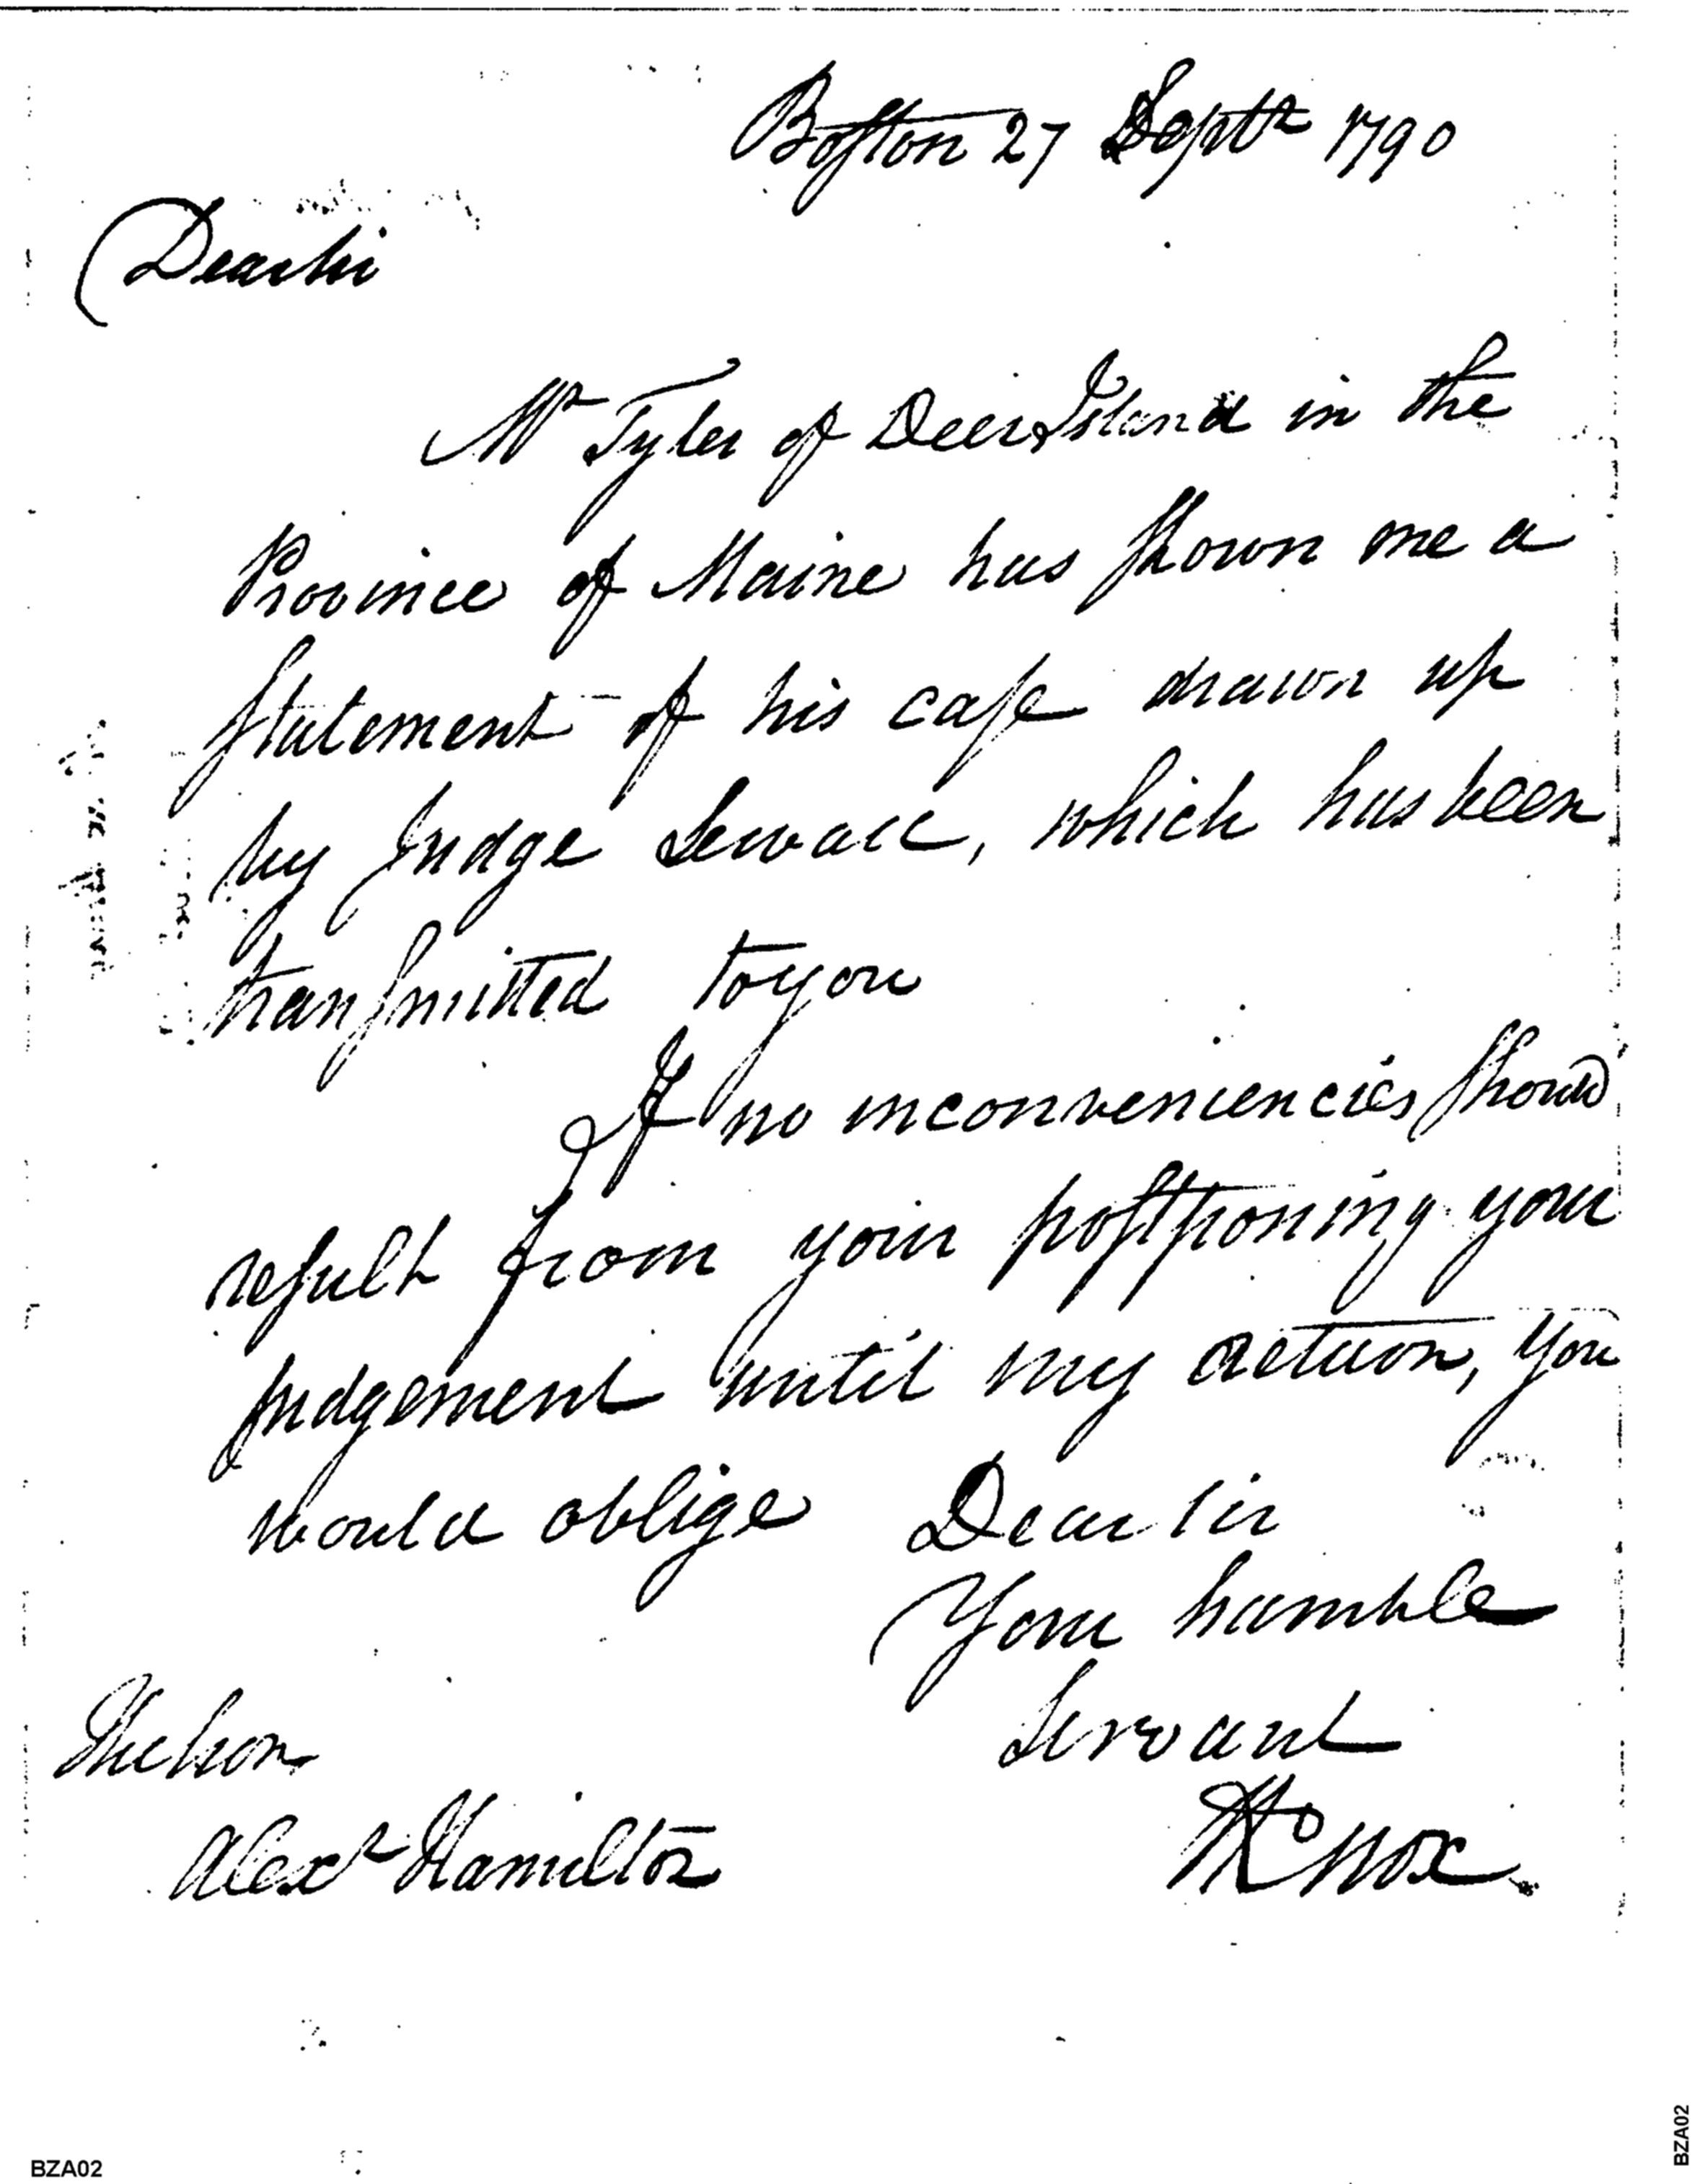 Boston 27 Septr 1790
Dear sir
Mr Tyler of Deer Island in the
Province of Maine has shown me a
statement of his case drawn up
by Judge Sewall, which has been
transmitted to you
If no inconveniencies should
result from your postponing your
judgement until my return, you
would oblige Dear sir
Your humble
Servant
HKnox
The hon
Alexr Hamilton
BZA02
BZA02